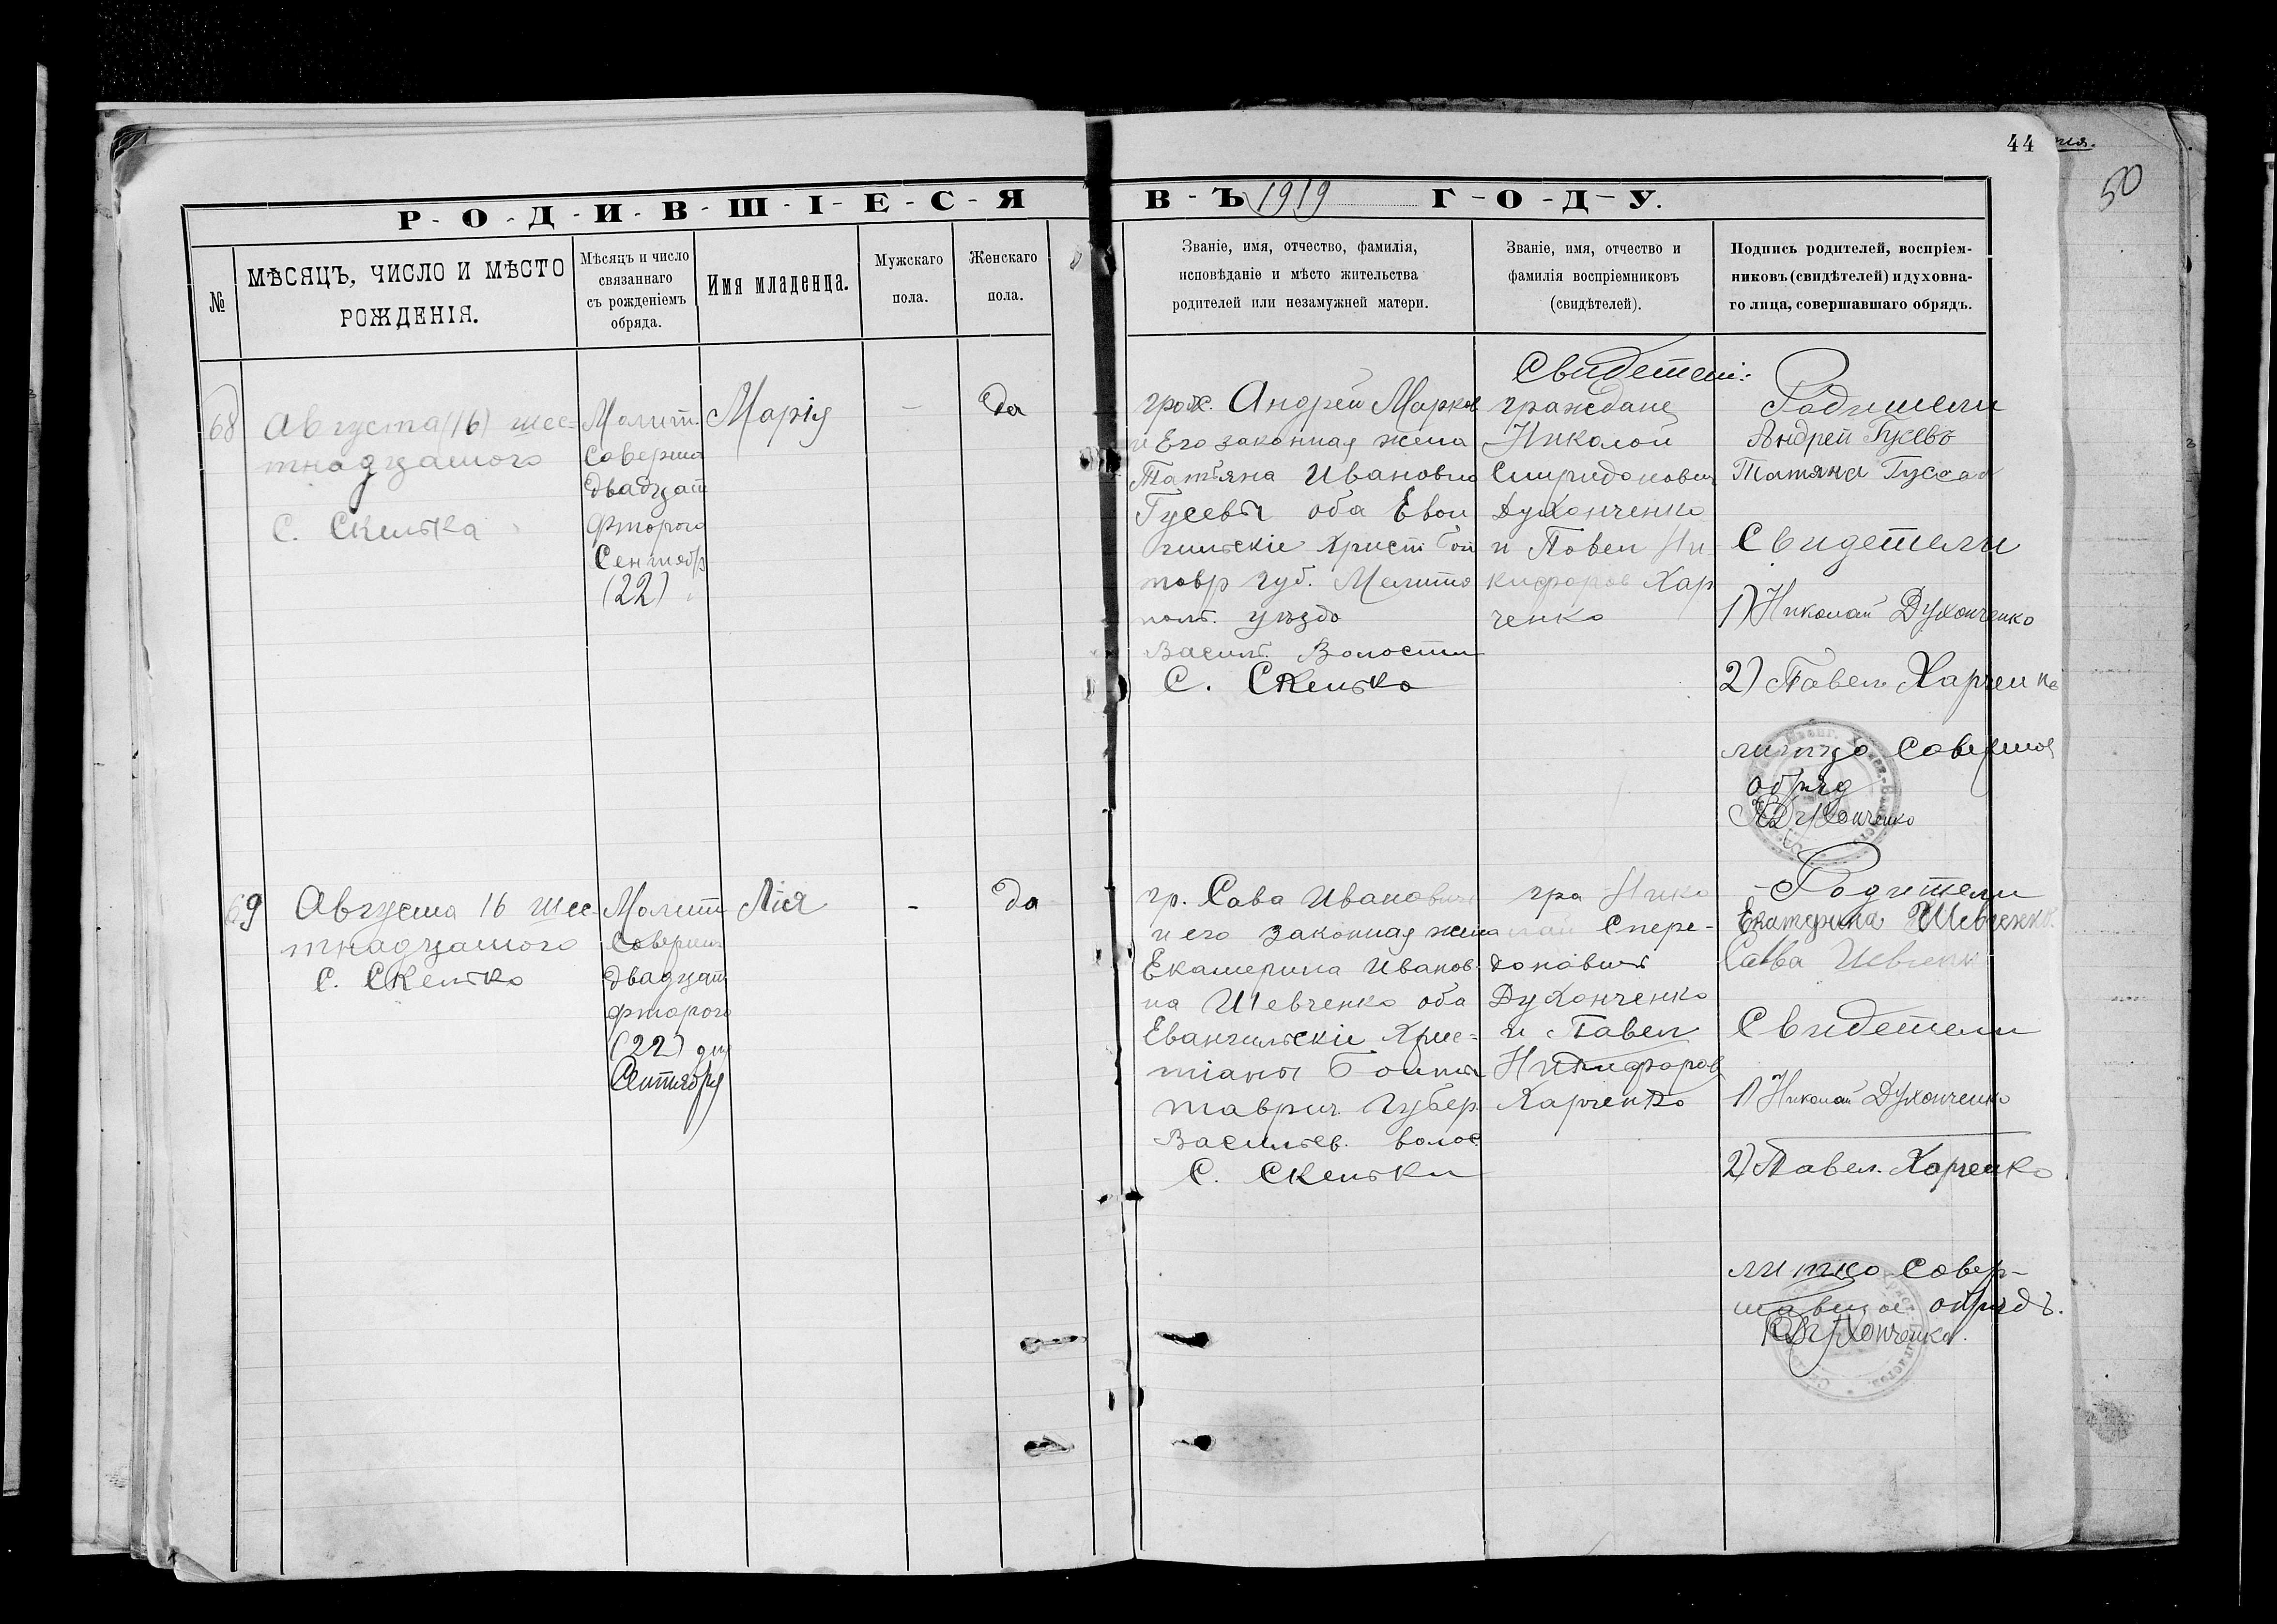 44
50
Р-О-Д-И-В-Ш-І-Е-С-Я
В-Ъ 1919 Г-О-Д-У.
№
МѢСЯЦЪ, ЧИСЛО И МѢСТО
РОЖДЕНІЯ.
Мѣсяцъ и число
связаннаго
съ рожденіемъ
обряда.
Имя младенца.
Мужскаго
пола.
Женскаго
пола.
Званіе, имя, отчество, фамилія,
исповѣданіе и мѣсто жительства
родителей или незамужней матери.
Званіе, имя, отчество и
фамилія воспріемниковъ
(свидѣтелей).
Подпись родителей, воспріем-
никовъ (свидѣтелей) и духовна-
го лица, совершавшаго обрядъ.
68
Августа (16) шес-
тнадцатого
С. Скелька
Молит.
Соверша
двадцат
фторого
Сентябр
(22)
Марія
-
да
граж. Андрей Марков
и Его законная жена
Татьяна Ивановна
Гусевы оба Еван
гильскіе Христ. Бап
тавр губ. Мелито
поль. уѣзда
Васил. Волости
С. Скелька
Свидетели:
граждане
Николай
Спиридонович
Духонченко
и Павел Ни
кифоров Хар
ченко
Родители
Андрей Гусевъ
Татяна Гусева
Свидетели
1) Николай Духонченко
2) Павел Харченко
литцо Соверша
обряд
Н Духонченко
69
Августа 16 шес-
тнадцатого
С. Скелько
Молит
Соверша
двадцат
фторого
(22) дня
Сентября
Лія
-
да
гр. Сава Иванович
и его законная жена
Екатерина Иванов-
на Шевченко оба
Евангильскіе Хрис-
тіаны Баптис
таврич. Губер.
Васильев. волос.
С. Скельки
гра Нико
лай Спере-
донович
Духонченко
и Павел
Никифоров
Харченко
Родители
Екатерина Шевченко
Савва Шевченко
Свидетели
1) Николай Духонченко
2) Павел. Харченко
литцо Совер-
шавшое обрядъ.
Н Духонченко.